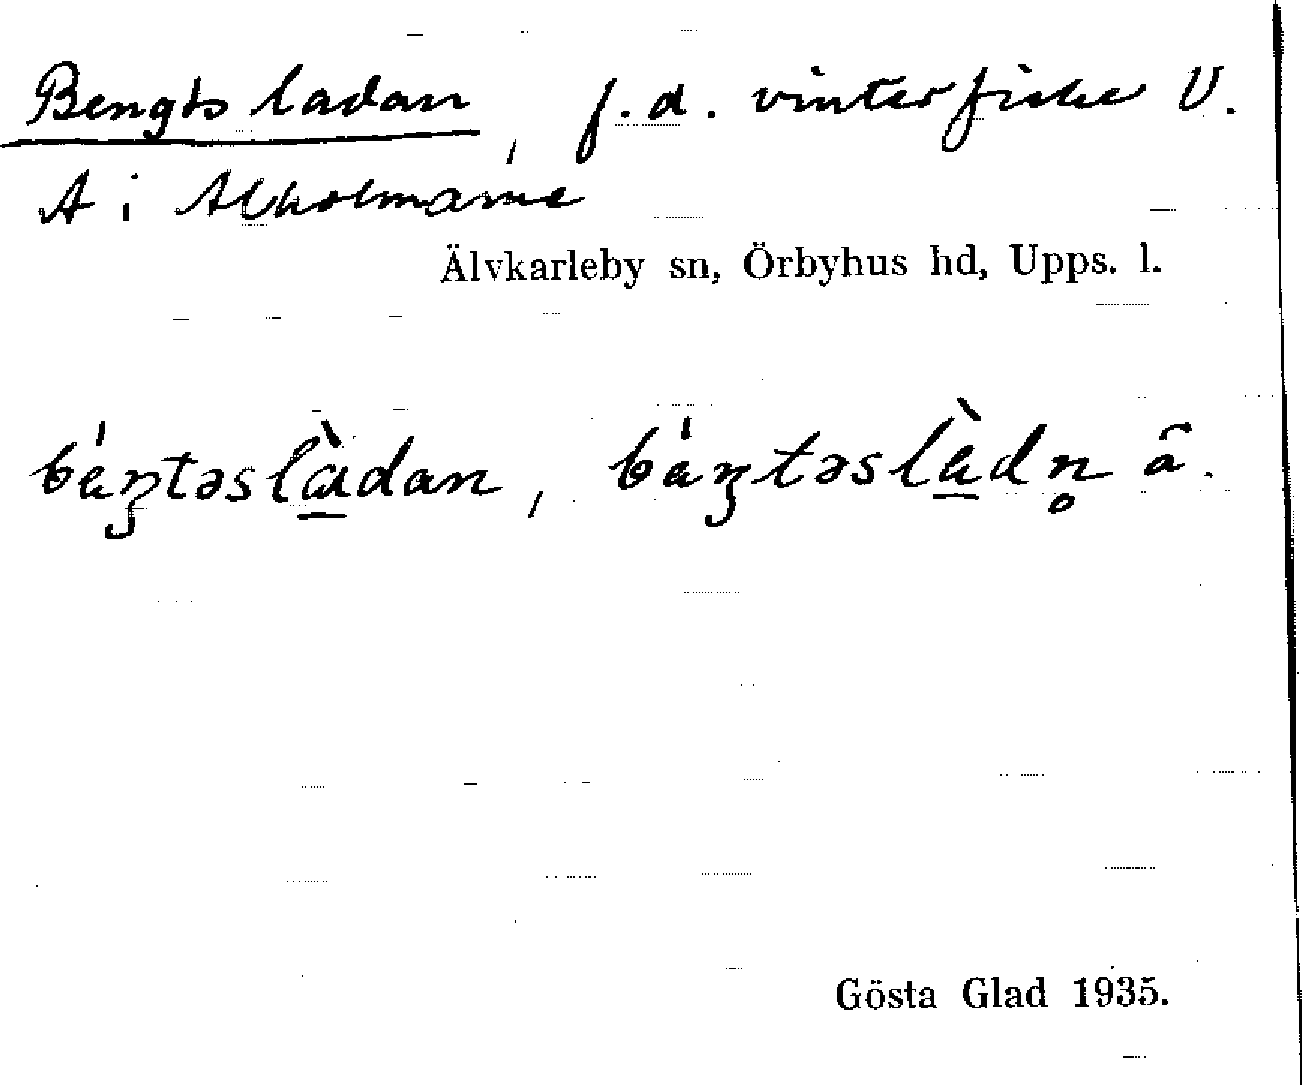 Bengts ladan, f.d. vinterfiske V.
A i Alholmarne
Älvkarleby sn, Örbyhus hd, Upps. l.
bàŋtəslàdan, bàŋtəslàdn̥ ā.
Gösta Glad 1935.